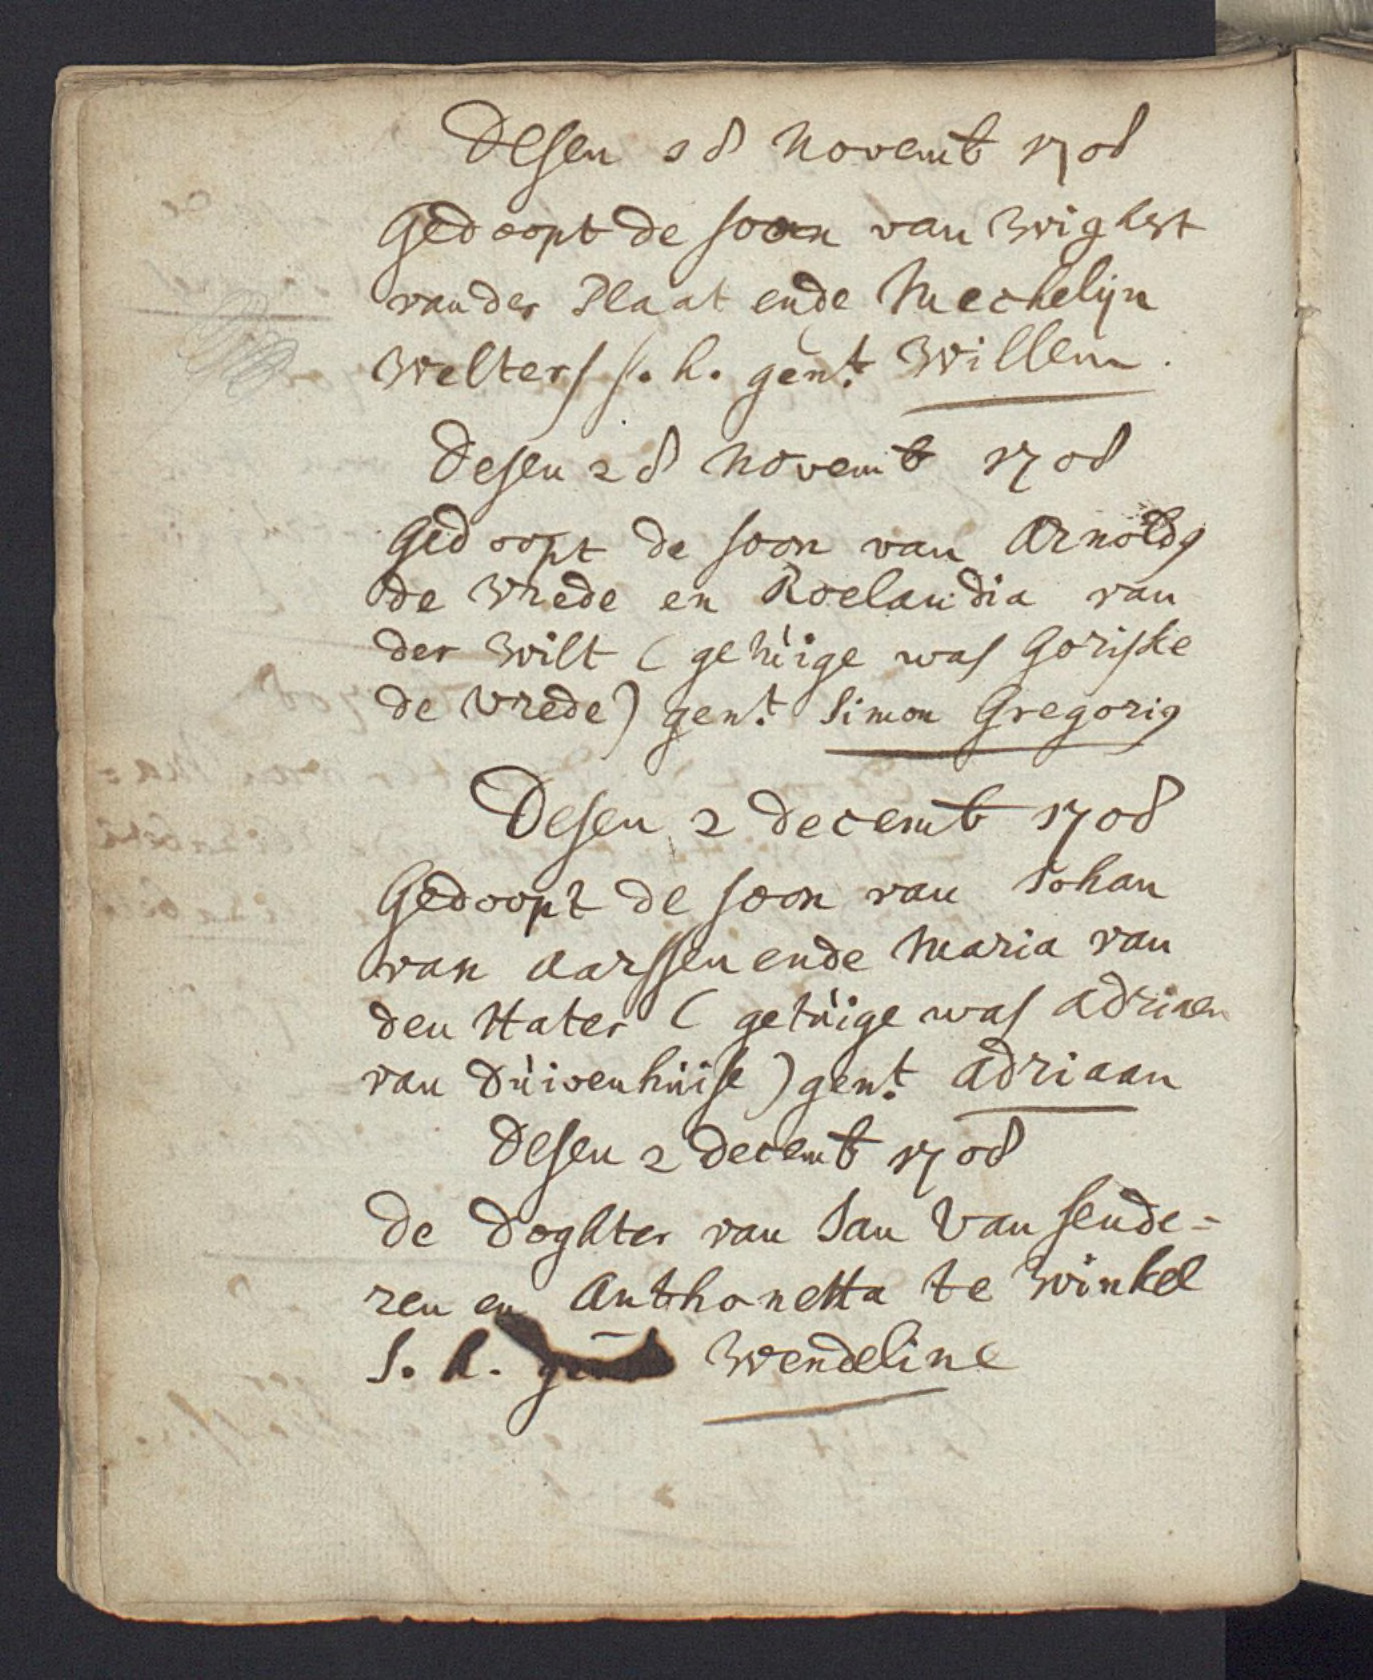 Desen 18 Novemb 1708
Gedoopt de soon van Wighert
vander Plaat ende Mechelijn
Welters s. h. gent. Willem.
Desen 28 Novemb 1708
Gedoopt de soon van Arnoldg
de Vrede en Roelandia van
der Wilt (getuige was Goriske
de Vrede) gent. Simon Gregorig
Desen 2 decemb 1708
Gedoopt de soon van Johan
van Aarssen ende Maria van
den Hater (getuige was Adriaen
van Duivenhuise) gent. Adriaan
Desen 2 decemb 1708
De Doghter van Jan Van sende=
ren en Anthonetta te Winkel
S. h. Wendeline